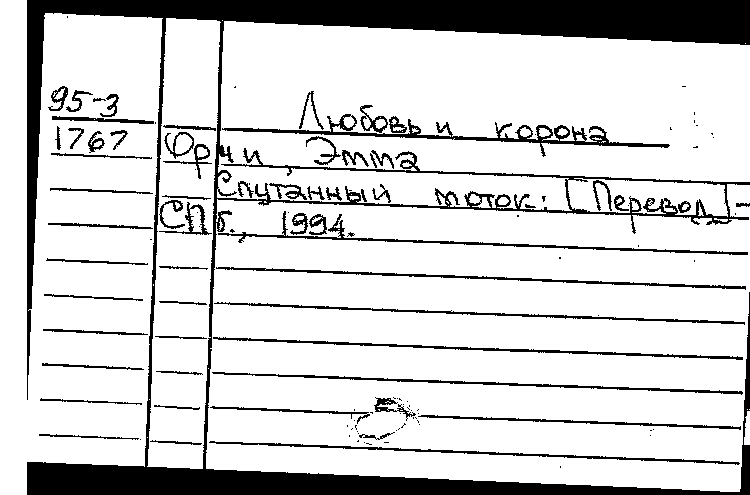 95-3
Любовь и корона
1767 Орчи, Эмма
Спутанный моток: [Перевод] -
СПб., 1994.